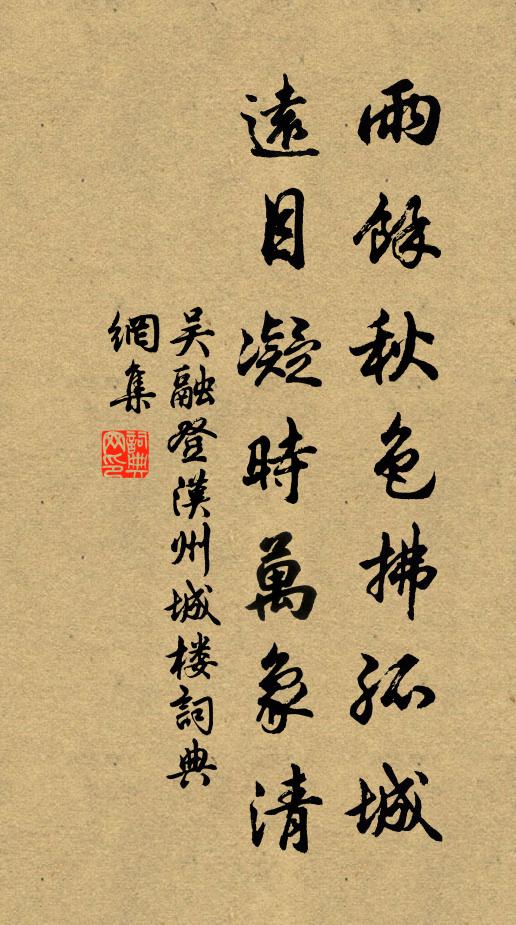 雨餘秋色拂孤城
遠目凝時萬象清
吳融登漢州城楼詞典
網集
詞典網印